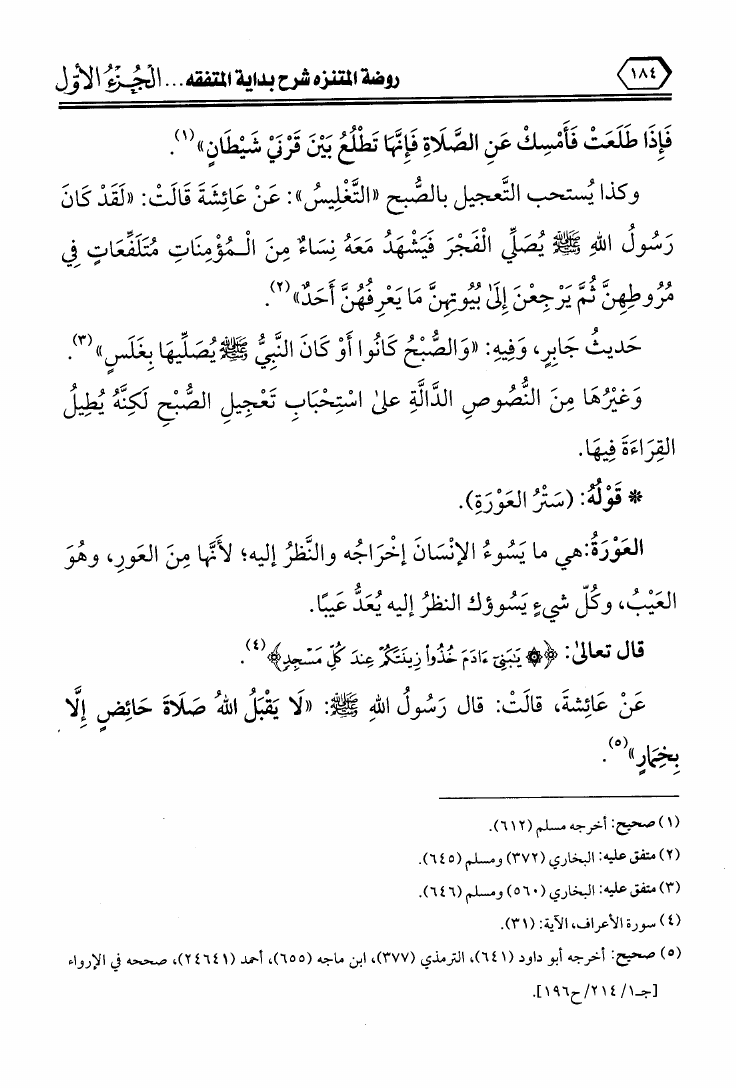 ١٨٤ روضة المتنزه شرح بداية المتفقه ... الجُزْءُ الأوَّل
فَإِذَا طَلَعَتْ فَأَمْسِكْ عَنِ الصَّلَاةِ فَإِنَّهَا تَطْلُعُ بَيْنَ قَرْنَيْ شَيْطَانٍ»(١).
وكذا يُستحب التَّعجيل بالصُّبح «التَّغْلِيسُ»: عَنْ عَائِشَةَ قَالَتْ: «لَقَدْ كَانَ
رَسُولُ اللهِ ﷺ يُصَلِّي الْفَجْرَ فَيَشْهَدُ مَعَهُ نِسَاءٌ مِنَ الْـمُؤْمِنَاتِ مُتَلَفِّعَاتٍ فِي
مُرُوطِهِنَّ ثُمَّ يَرْجِعْنَ إِلَىٰ بُيُوتِهِنَّ مَا يَعْرِفُهُنَّ أَحَدٌ»(٢).
حَديثُ جَابِرٍ، وَفِيهِ: «وَالصُّبْحُ كَانُوا أَوْ كَانَ النَّبِيُّ ﷺ يُصَلِّيهَا بِغَلَسٍ»(٣).
وَغَيْرُهَا مِنَ النُّصُوصِ الدَّالَّةِ علىٰ اسْتِحْبَابِ تَعْجِيلِ الصُّبْحِ لَكِنَّهُ يُطِيلُ
القِرَاءَةَ فِيهَا.
* قَوْلُهُ: (سَتْرُ العَوْرَةِ).
العَوْرَةُ: هي ما يَسُوءُ الإنْسَانَ إخْرَاجُه والنَّظَرُ إليه؛ لأَنَّها مِنَ العَورِ، وهُوَ
العَيْبُ، وكُلّ شيءٍ يَسُوؤك النظرُ إليه يُعَدُّ عَيبًا.
قال تعالىٰ: ﴿۞ يَٰبَنِىٓ ءَادَمَ خُذُوا۟ زِينَتَكُمْ عِندَ كُلِّ مَسْجِدٍ﴾(٤).
عَنْ عَائِشةَ، قالَتْ: قال رَسُولُ اللهِ ﷺ: «لَا يَقْبَلُ اللهُ صَلَاةَ حَائِضٍ إِلَّا
بِخِمَارٍ»(٥).
(١) صحيح: أخرجه مسلم (٦١٢).
(٢) متفق عليه: البخاري (٣٧٢) ومسلم (٦٤٥).
(٣) متفق عليه: البخاري (٥٦٠) ومسلم (٦٤٦).
(٤) سورة الأعراف، الآية: (٣١).
(٥) صحيح: أخرجه أبو داود (٦٤١)، الترمذي (٣٧٧)، ابن ماجه (٦٥٥)، أحمد (٢٤٦٤١)، صححه في الإرواء
[جـ١/ ٢١٤/ ح١٩٦].